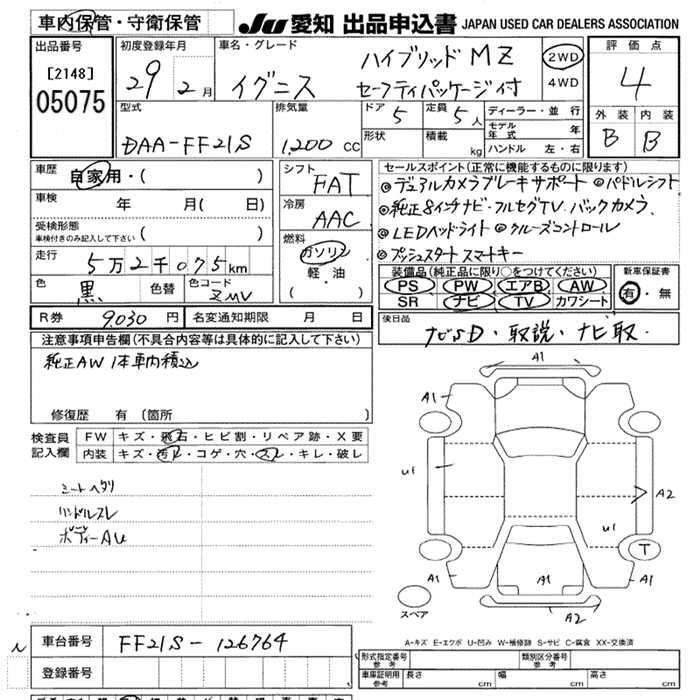 車内保管・守衛保管
JU 愛知 出品申込書 JAPAN USED CAR DEALERS ASSOCIATION
出品番号
[2148]
05075
初度登録年月
29 2月
車名・グレード
イグニス
ハイブリッド MZ
セーフティパッケージ付
2WD
4WD
評価点
4
外装 内装
B B
型式
DAA-FF21S
排気量
1,200 cc
ドア 5
定員 5人
形状
積載 kg
ディーラー・並行
モデル年式 年
ハンドル 左・右
車歴 自家用・( )
車検 年 月( 日)
受検形態
車検付きのみ記入して下さい ( )
走行 5万2千075km
色 黒 色替 色コード ZMV
シフト
FAT
冷房
AAC
燃料
ガソリン
軽・油
( )
セールスポイント(正常に機能するものに限ります)
◎デュアルカメラブレーキサポート ◎パドルシフト
◎純正8インチナビ・フルセグTV.バックカメラ.
◎LEDヘッドライト ◎クルーズコントロール
◎プッシュスタート スマートキー
装備品(純正品に限り○をつけてください)
PS PW エアB AW
SR ナビ TV カワシート
新車保証書
有・無
R券 9,030円 名変通知期限 月 日
後日品
ナビSD・取説・ナビ取.
注意事項申告欄(不具合内容等は具体的に記入して下さい)
純正AW 1本車内積込
修復歴 有(箇所 )
検査員
記入欄
FW キズ・飛石・ヒビ割・リペア跡・X要
内装 キズ・汚レ・コゲ・穴・スレ・キレ・破レ
シートヘタリ
ハンドルスレ
ボディーAU
A1
A1
A1
U1
A2
U1
T
A1
A1
A1
A2
スペア
A-キズ E-エクボ U-凹み W-補修跡 S-サビ C-腐食 XX-交換済
N
車台番号 FF21S-126764
登録番号
形式指定番号
参考
類別区分番号
参考
車庫証明用
参考
長さ cm 幅 cm 高さ cm